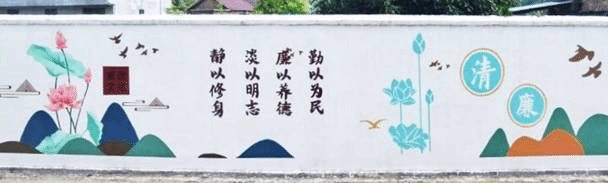 廉政
文化
勤以为民
廉以养德
淡以明志
静以修身
清
廉